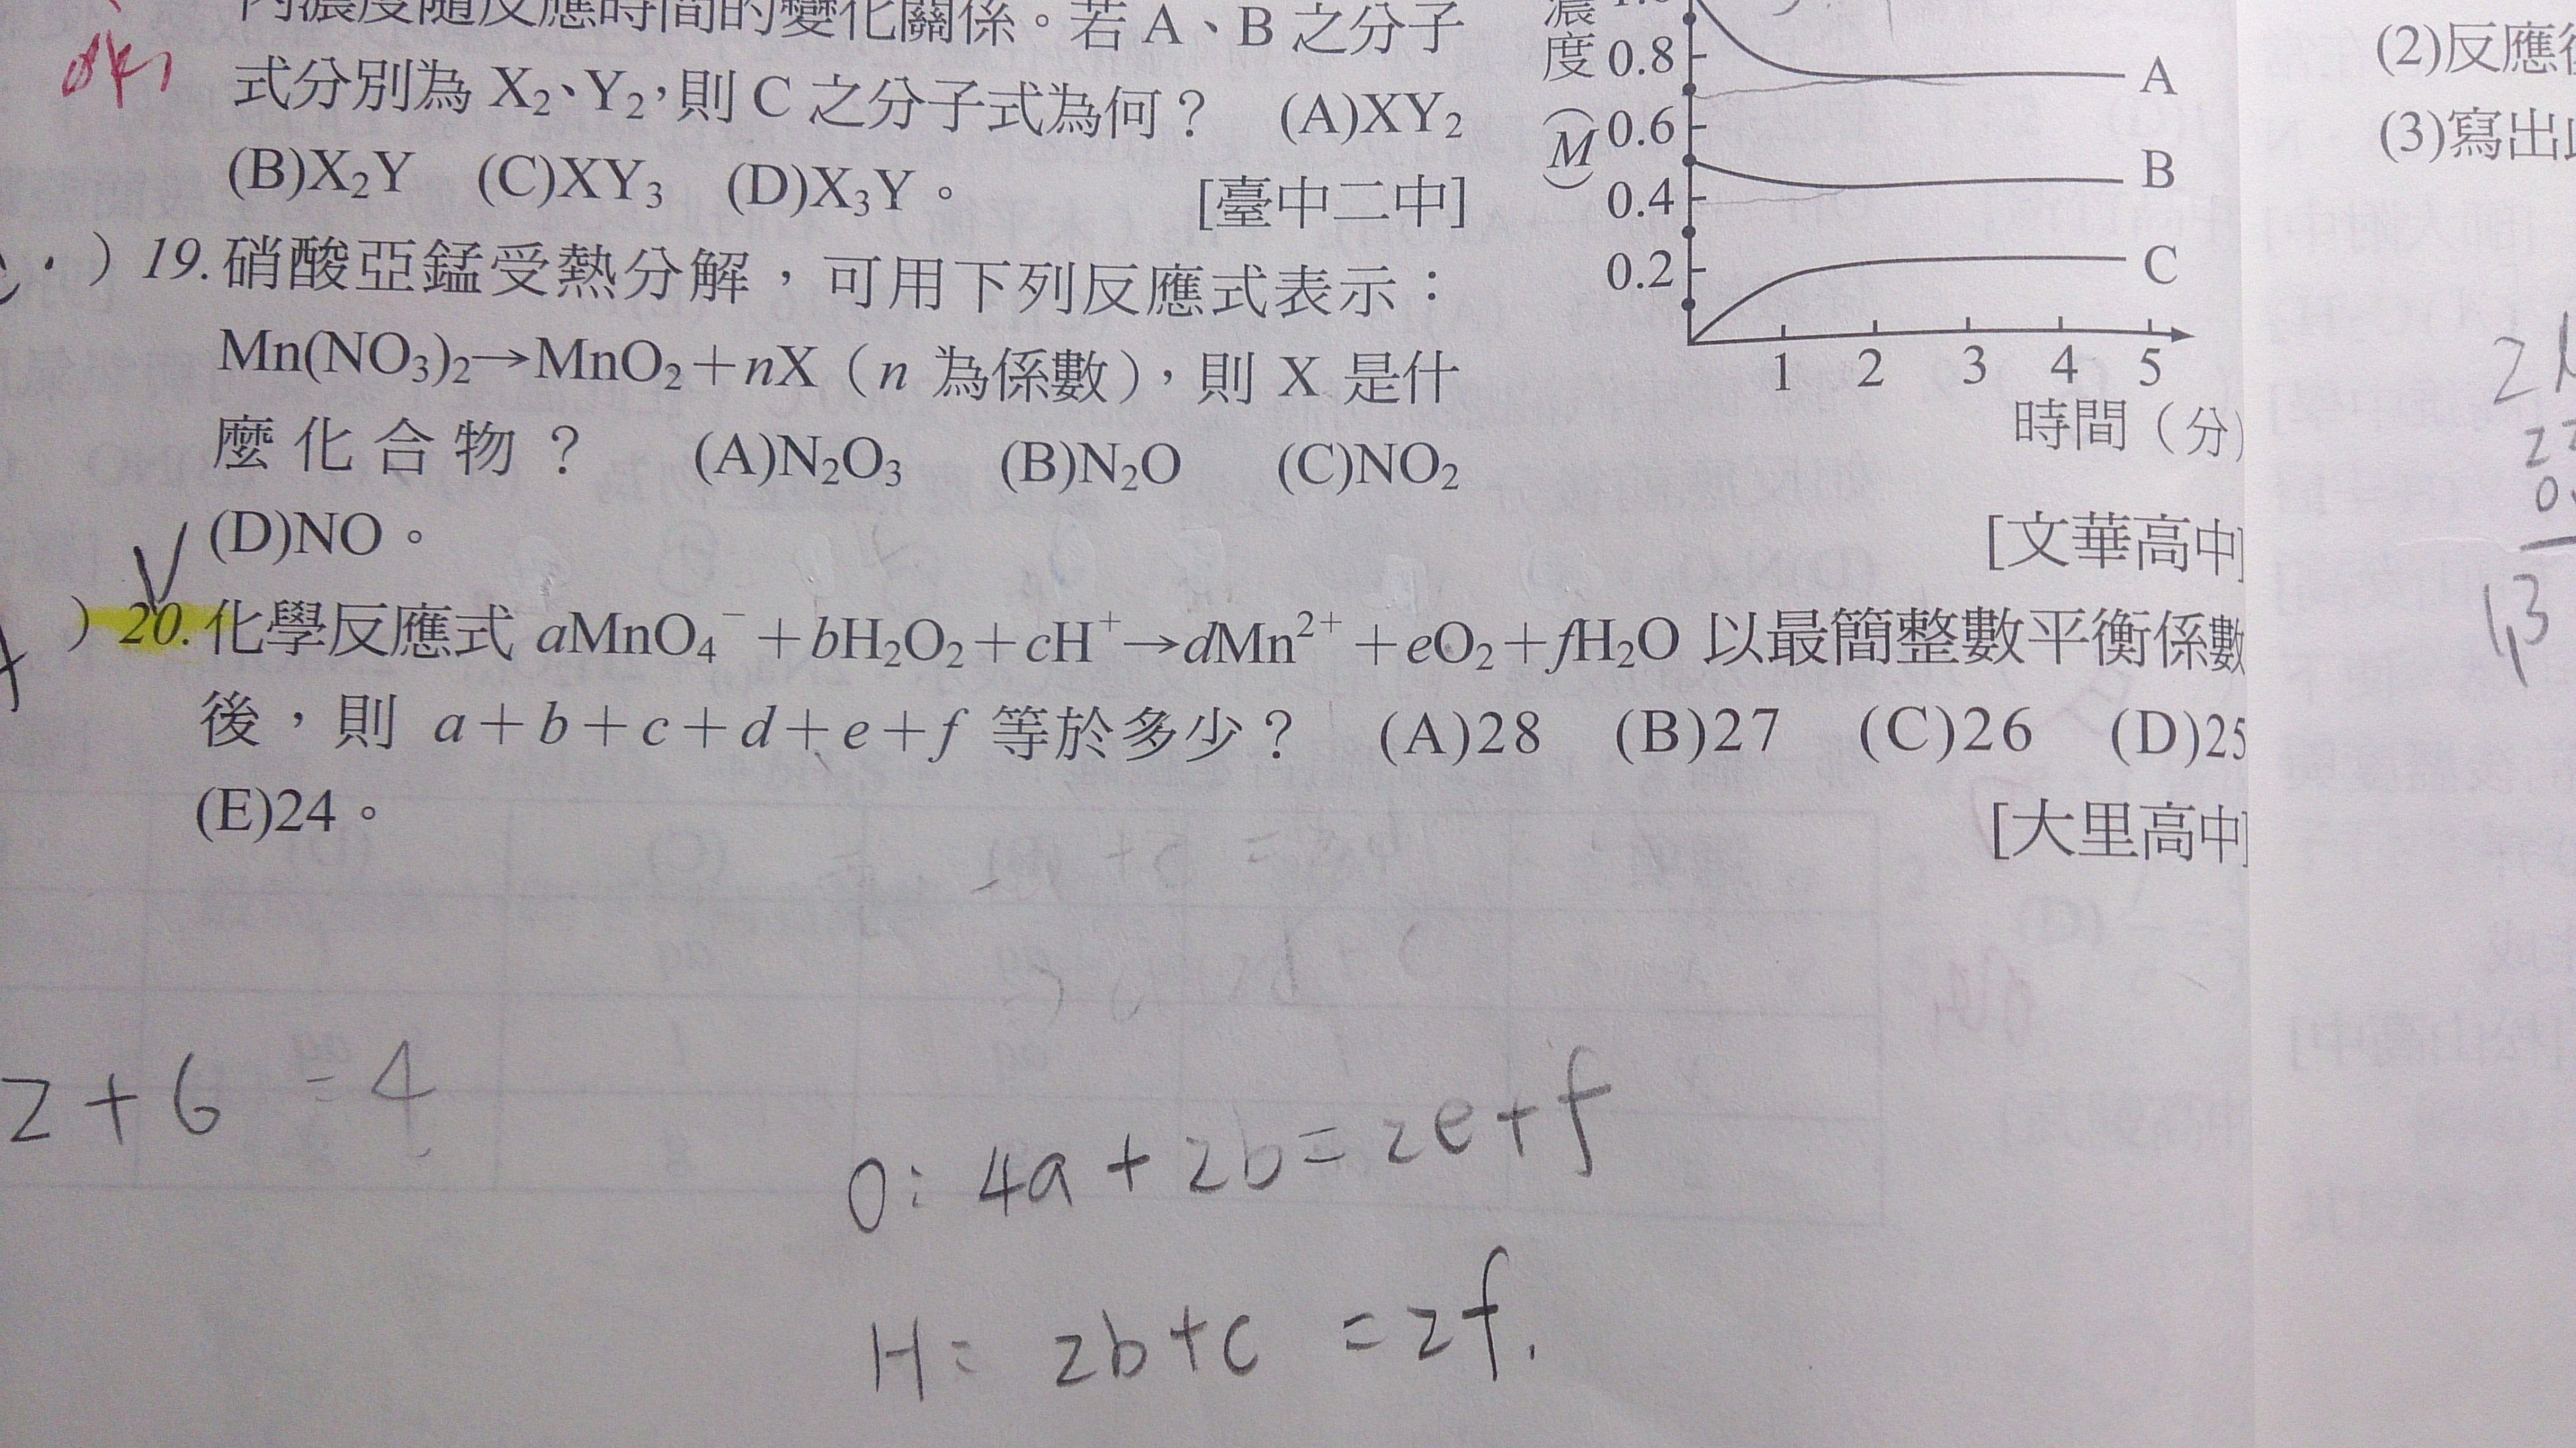 內濃度隨反應時間的變化關係。若 A、B 之分子
式分別為 X₂、Y₂,則 C 之分子式為何? (A)XY₂
(B)X₂Y (C)XY₃ (D)X₃Y。 [臺中二中]
濃度(M)
0.8
0.6
0.4
0.2
A
B
C
1 2 3 4 5
時間(分)
) 19. 硝酸亞錳受熱分解,可用下列反應式表示:
Mn(NO₃)₂→MnO₂+nX(n 為係數),則 X 是什
麼化合物? (A)N₂O₃ (B)N₂O (C)NO₂
(D)NO。 [文華高中]
) 20. 化學反應式 aMnO₄⁻+bH₂O₂+cH⁺→dMn²⁺+eO₂+fH₂O 以最簡整數平衡係數
後,則 a+b+c+d+e+f 等於多少? (A)28 (B)27 (C)26 (D)25
(E)24。 [大里高中]
2+6 =4
O: 4a+2b=2e+f
H= 2b+c =2f.
(2)反應
(3)寫出